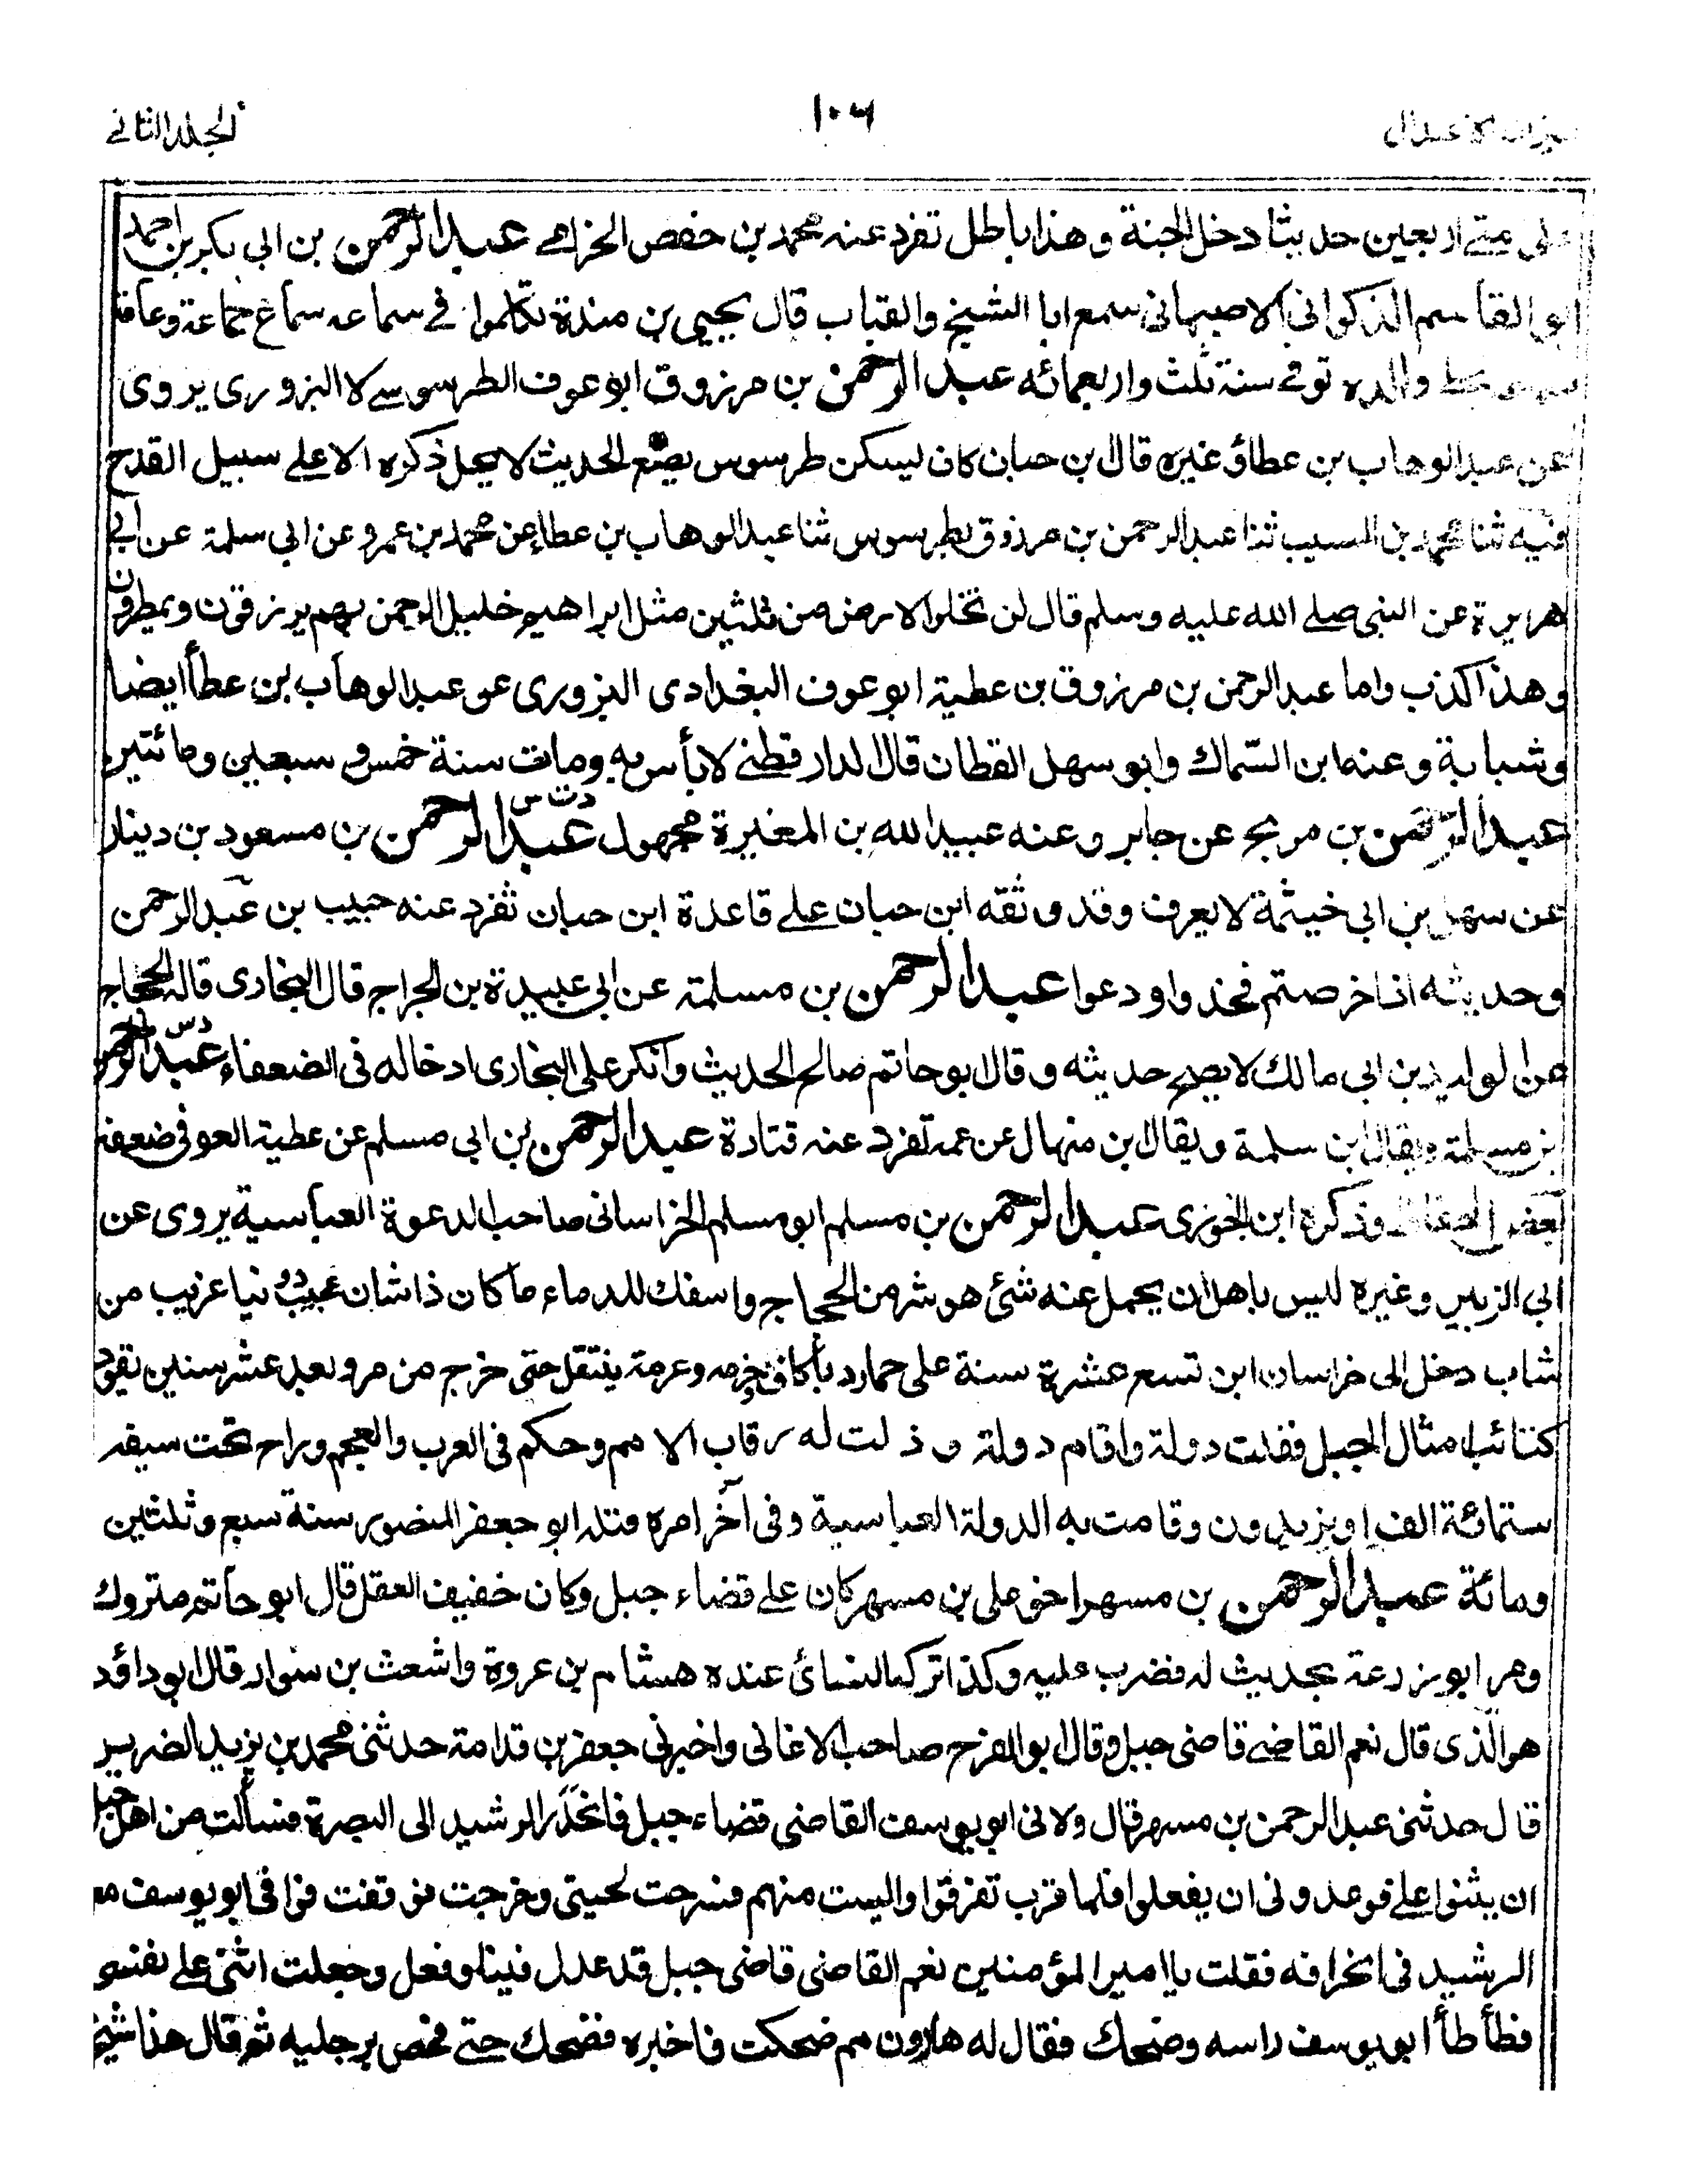 ميزان الاعتدال
١٠٦
المجلد الثاني
على امتي اربعين حديثا دخل الجنة وهذا باطل تفرد عنه محمد بن حفص الحزامے عبد الرحمن بن ابي بكر بن احمد
ابو القاسم الذكواني الاصبهاني سمع ابا الشيخ والقباب قال يحيى بن مندة تكلموا في سماعه سماع جماعة و
والده توفے سنة ثلث واربعمائه عبد الرحمن بن مرزوق ابو عوف الطرسوسے لا البزوري يروى
عن عبد الوهاب بن عطاؤ غيره قال بن حبان كان يسكن طرسوس يضع الحديث لا يحل ذكره الا علے سبيل القدح
فيه ثنا محمد بن المسيب ثنا عبد الرحمن بن مرزوق بطرسوس ثنا عبد الوهاب بن عطاء عن محمد بن عمرو عن ابي سلمة عن ابي
هريرة عن النبي صلے الله عليه وسلم قال لن تخلوا الارض من ثلثين مثل ابراهيم خليل الرحمن بهم يرزقون ويمطرون
وهذا كذب واما عبد الرحمن بن مرزوق بن عطية ابو عوف البغدادى البزورى عن عبد الوهاب بن عطأ ايضا
وشبابة وعنه ابن السّماك وابو سهل القطان قال الدارقطنے لا بأس به ومات سنة خمس و سبعين ومائتين
عبد الرّحمن بن مريح عن جابر وعنه عبيد الله بن المغيرة مجهول عبد الرحمن دت س بن مسعود بن دينار
عن سهل بن ابي خيثمة لا يعرف وقد وثقه ابن حبان علے قاعدة ابن حبان تفرد عنه حبيب بن عبد الرحمن
وحديثه اذا خرصتم فخذوا ودعوا عبد الرحمن بن مسلمة عن ابي عبيدة بن الجراح قال البخارى قاله الحجاج
عن الوليد بن ابي مالك لا يصح حديثه وقال ابو حاتم صالح الحديث وانكر على البخارى ادخاله فى الضعفاء عبد الرحمن دس
بن مسلمة ويقال ابن سلمة ويقال ابن منهال عن عمه تفرد عنه قتادة عبد الرحمن بن ابي مسلم عن عطية العوفى ضعفه
بعض الحفاظ وذكره ابن الجوزى عبد الرحمن بن مسلم ابو مسلم الخراسانى صاحب الدعوة العباسية يروى عن
ابي الزبير وغيره ليس باهل ان يحمل عنه شئ هو شر من الحجاج واسفك للدماء ما كان ذا شان عجيب دو نبا غريب من
شاب دخل الى خراسان ابن تسع عشرة سنة على حمار بأكاف وعرمة ينتقل حتى خرج من مرو بعد عشر سنين يقود
كتائب امثال الجبل فقلت دولة واقام دولة و ذلت له رقاب الامم وحكم فى العرب والعجم وراح تحت سيفه
ستمائة الف او يزيدون وقامت به الدولة العباسية وفى آخر امره قتله ابو جعفر المنصور سنة سبع وثلثين
ومائة عبد الرحمن بن مسهر اخو على بن مسهر كان علے قضاء جبل وكان خفيف العقل قال ابو حاتم متروك
ومر ابو زرعة بحديث له فضرب عليه وكذا تركه النسائ عنده هشام بن عروة واشعث بن سوار قال ابو داؤد
هو الّذى قال نعم القاضے قاضى جبل وقال ابو الفرج صاحب الاغانى واخبرنى جعفر بن قدامة حدثنى محمد بن يزيد الضرير
قال حدثنى عبد الرحمن بن مسهر قال ولانى ابو يوسف القاضى قضاء جبل فانحدر الرشيد الى البصرة فسألت من اهل جبل
ان يثنوا علے فوعدونى ان يفعلوا فلما قرب تفرقوا واليست منهم فسرحت لحيتى وخرجت فوقفت فوافى ابو يوسف مع
الرشيد فى الحراقه فقلت يا امير المؤمنين نعم القاضى قاضى جبل قد عدل فينا وفعل وجعلت اثنى علے نفسى
فطأطأ ابو يوسف راسه وضحك فقال له هارون مم ضحكت فاخبره فضحك حتے فحص برجليه ثم قال هذا شيخ